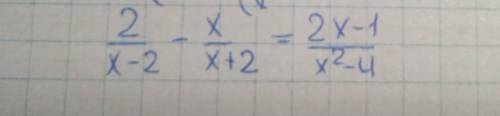 2/(x-2) - x/(x+2) = (2x-1)/(x²-4)